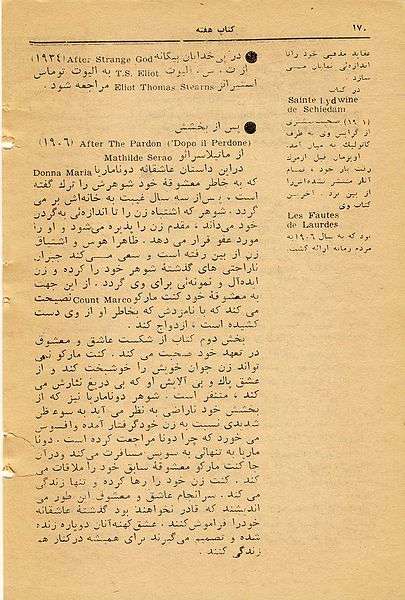 ۱۷۰
کتاب هفته
عقاید مذهبی خود را تا
اندازه‌ئی نمایان می
سازد
در کتاب
Sainte Lydwine
de Schiedam
از گرایش وی به طرف
کاتولیک به میان آمد.
رنت بار خود، تمام
آثار منتشر نشده‌اش را
از بین برد. آخرین
کتاب وی
Les Fautes
de Laurdes
بود که به سال ۱۹۰۶ به
مردم زمانه ارائه گشت.
● در پی خدایان بیگانه After Strange God (۱۹۳۴)
از ت. س. الیوت T.S. Eliot به الیوت توماس
استیرانز Eliot Thomas Stearns مراجعه شود.
● پس از بخشش
After The Pardon ('Dopo il Perdone) (۱۹۰۶)
از ماتیلاسرائو Mathilde Serao
دراین داستان عاشقانه دوناماریا Donna Maria
که به خاطر معشوقهٔ خود شوهرش را ترک گفته
است، پس‌از سه سال غیبت به خانه‌اش بر می
گردد. شوهر که اشتباه زن را تا اندازه‌ئی به‌گردن
خود می‌داند، مقدم زن را پذیره می‌شود و او را
مورد عفو قرار می دهد. ظاهرا هوس و اشتیاق
زن از بین رفته است و سعی می‌کند جبران
ناراحتی های گذشتهٔ شوهر خود را کرده و زن
ایده‌آل و نمونه‌ئی برای وی گردد. از این جهت
به معشوقهٔ خود کنت مارکو Count Marco نصیحت
می کند که با نامزدش که بخاطر او از وی دست
کشیده است، ازدواج کند.
بخش دوم کتاب از شکست عاشق و معشوق
در تعهد خود صحبت می کند. کنت مارکو نمی
تواند زن جوان خویش را خوشبخت کند و از
عشق پاك و بی آلایش او که بی دریغ نثارش می
کند، متنفر است. شوهر دوناماریا نیز که از
بخشش خود ناراضی به نظر می آید به سوء ظن
شدیدی نسبت به زن خودگرفتار آمده وافسوس
می خورد که چرا دونا مراجعت کرده است. دونا
ماریا به تنهائی به سویس‌مسافرت می‌کند ودرآن
جا کنت مارکو معشوقهٔ سابق خود را ملاقات می
کند. کنت زن خود را رها کرده و تنها زندگی
می کند. سرانجام عاشق و معشوق این طور می
اندیشند که قادر نخواهند بود گذشتهٔ عاشقانه
خودرا فراموش‌کنند. عشق‌کهنه‌آنان دوباره زنده
شده و تصمیم می‌گیرند برای همیشه درکنار هم
زندگی کنند.